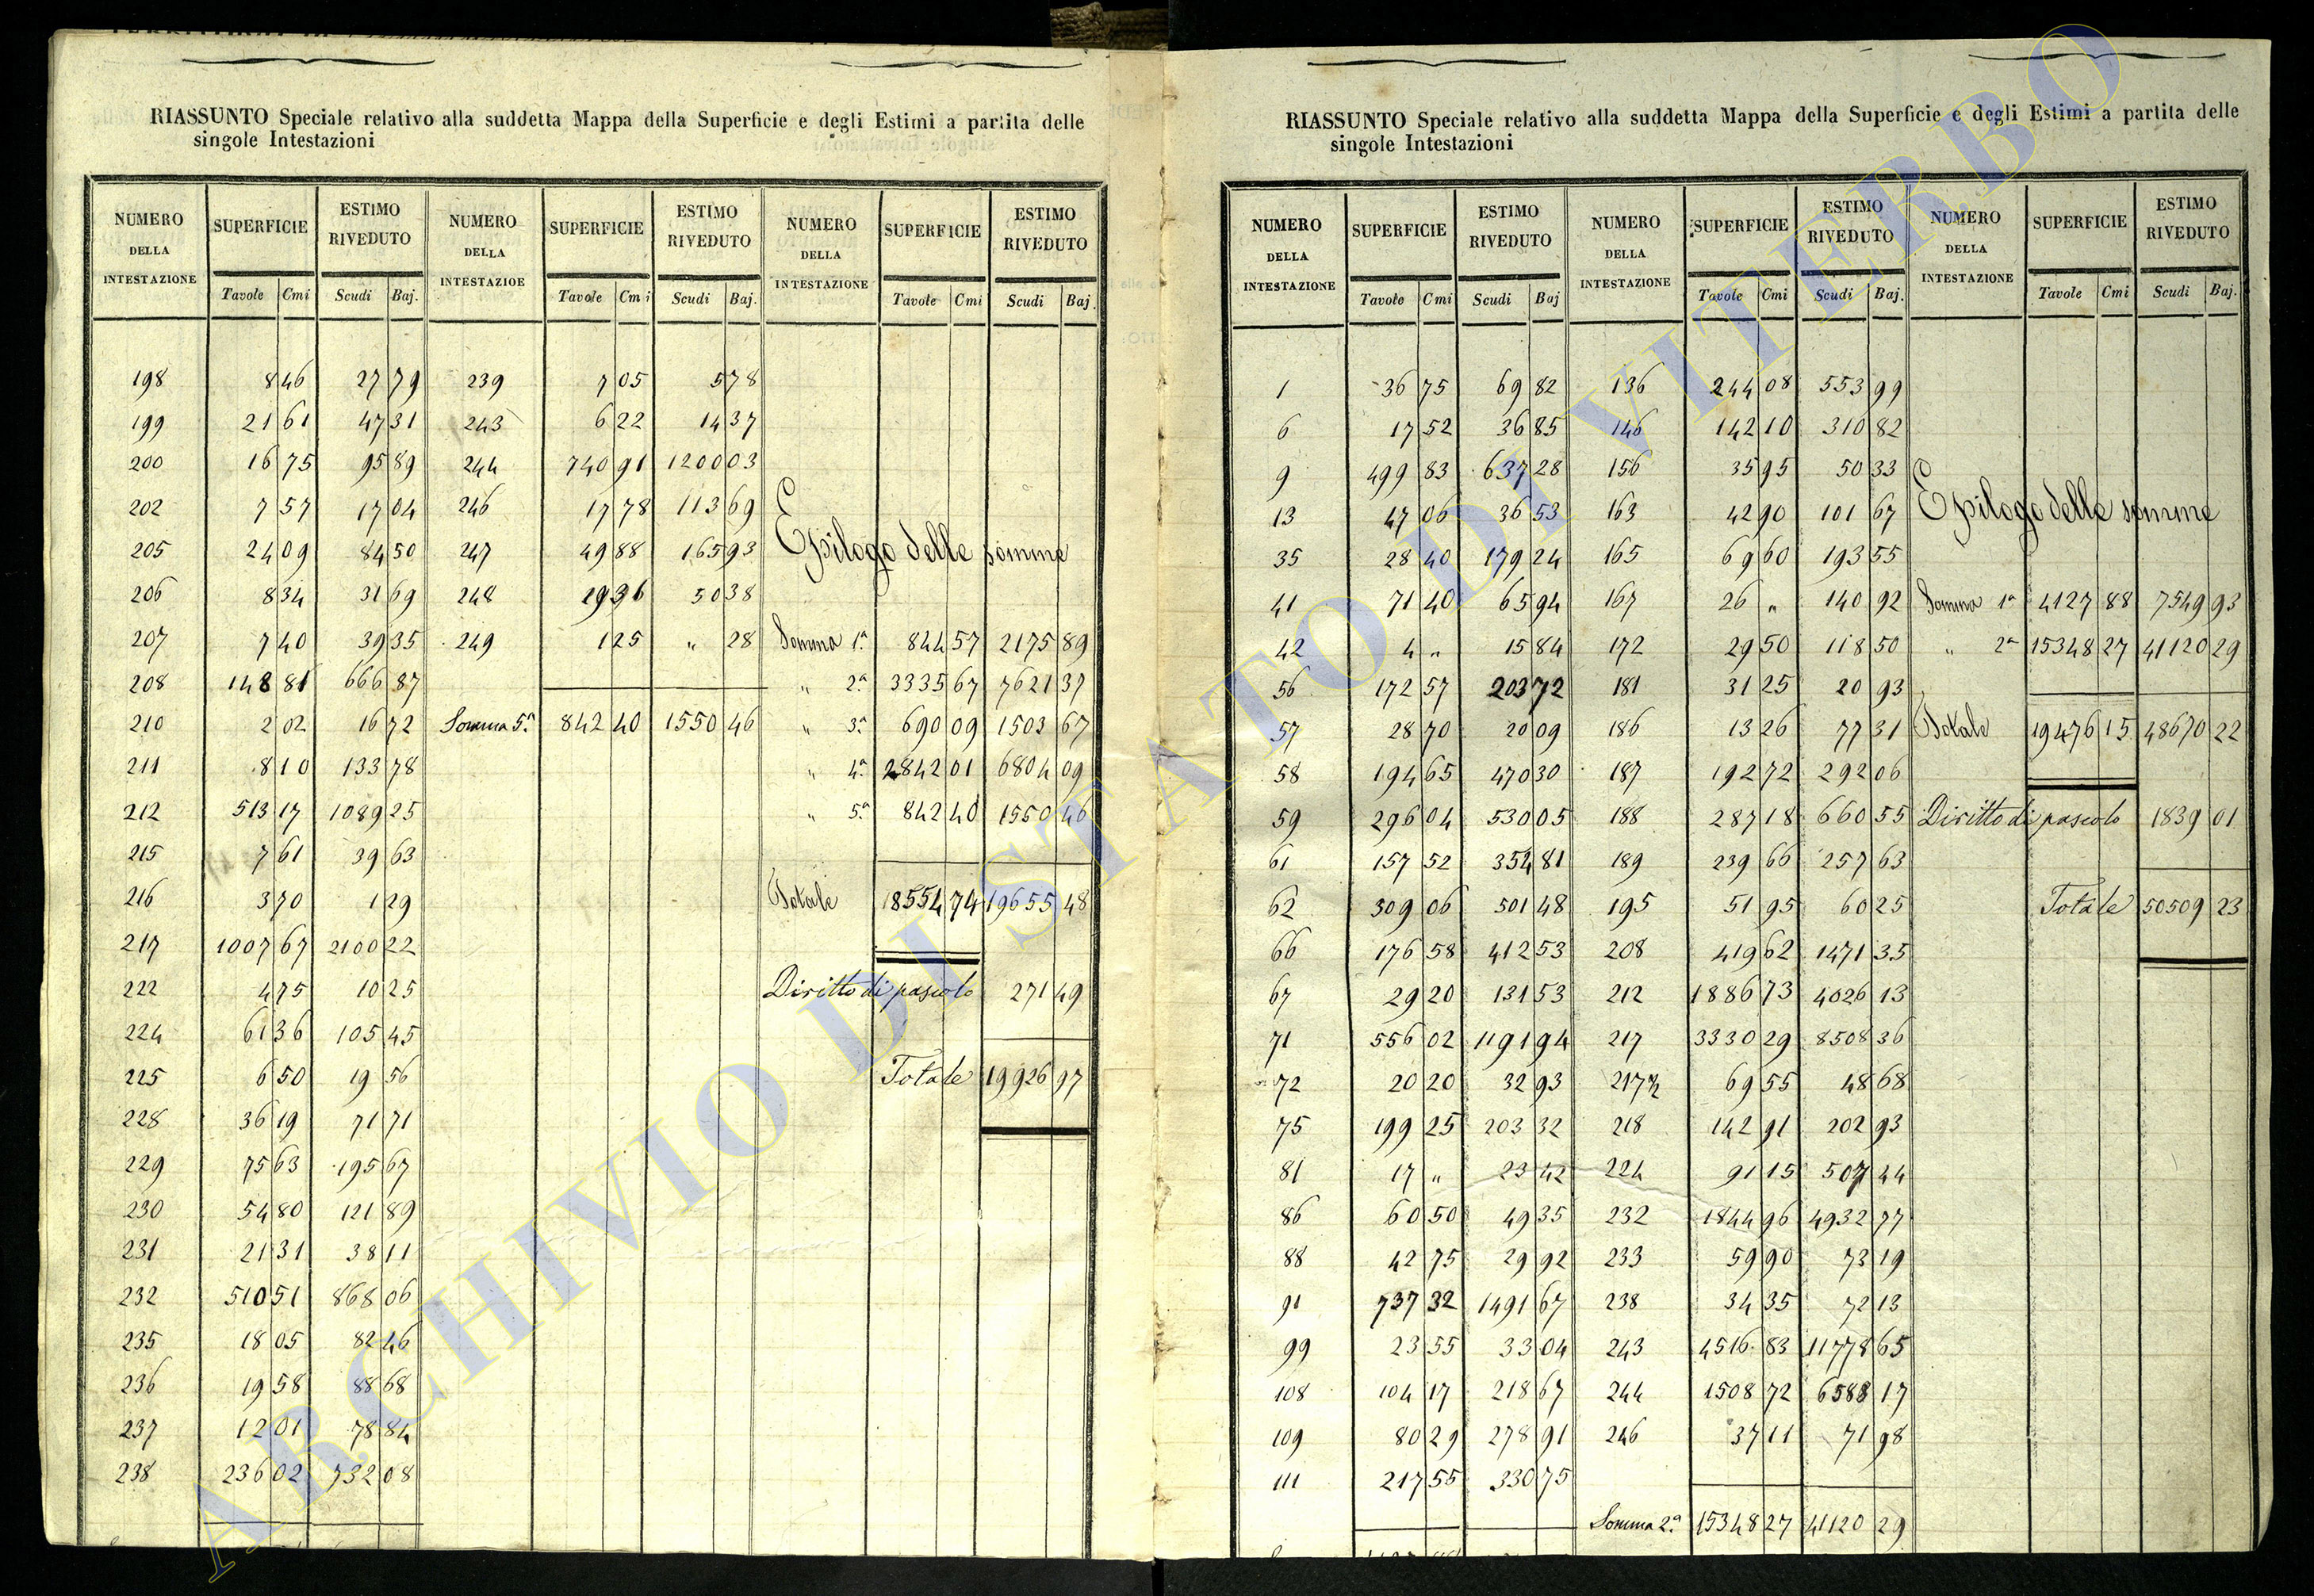 RIASSUNTO Speciale relativo alla suddetta Mappa della Superficie e degli Estimi a partita delle
singole Intestazioni
NUMERO DELLA INTESTAZIONE SUPERFICIE ESTIMO RIVEDUTO NUMERO DELLA INTESTAZIOE SUPERFICIE ESTIMO RIVEDUTO NUMERO DELLA INTESTAZIONE SUPERFICIE ESTIMO RIVEDUTO
Tavole Cmi Scudi Baj. Tavole Cmi Scudi Baj. Tavole Cmi Scudi Baj.
198 8 46 27 79 239 7 05 5 78
199 21 61 47 31 243 6 22 14 37
200 16 75 95 89 244 740 91 1200 03
202 7 57 17 04 246 17 78 113 69
205 24 09 84 50 247 49 88 165 93 Epilogo delle somme
206 8 34 31 69 248 19 36 50 38
207 7 40 39 35 249 1 25 " 28 Somma 1ª 844 57 2175 89
208 148 81 666 87 " 2ª 3335 67 7621 37
210 2 02 16 72 Somma 5ª 842 40 1550 46 " 3ª 690 09 1503 67
211 8 10 133 78 " 4ª 2842 01 6804 09
212 513 17 1089 25 " 5ª 842 40 1550 46
215 7 61 39 63
216 3 70 1 29 Totale 8554 74 19655 48
217 1007 67 2100 22
222 4 75 10 25 Diritto di pascolo 271 49
224 61 36 105 45
225 6 50 19 56 Totale 19926 97
228 36 19 71 71
229 75 63 195 67
230 54 80 121 89
231 21 31 38 11
232 510 51 868 06
235 18 05 82 46
236 19 58 88 68
237 12 01 78 84
238 236 02 732 08
RIASSUNTO Speciale relativo alla suddetta Mappa della Superficie e degli Estimi a partita delle
singole Intestazioni
NUMERO DELLA INTESTAZIONE SUPERFICIE ESTIMO RIVEDUTO NUMERO DELLA INTESTAZIONE SUPERFICIE ESTIMO RIVEDUTO NUMERO DELLA INTESTAZIONE SUPERFICIE ESTIMO RIVEDUTO
Tavole Cmi Scudi Baj Tavole Cmi Scudi Baj. Tavole Cmi Scudi Baj.
1 36 75 69 82 136 244 08 553 99
6 17 52 36 85 146 142 10 310 82
9 499 83 637 28 156 35 95 50 33
13 47 06 36 53 163 42 90 101 67 Epilogo delle somme
35 28 40 179 24 165 69 60 193 55
41 71 40 65 94 167 26 " 140 92 Somma 1ª 4127 88 7549 93
42 4 " 15 84 172 29 50 118 50 " 2ª 15348 27 41120 29
56 172 57 203 72 181 31 25 20 93
57 28 70 20 09 186 13 26 77 31 Totale 19476 15 48670 22
58 194 65 470 30 187 192 72 292 06
59 296 04 530 05 188 287 18 660 55 Diritto di pascolo 1839 01
61 157 52 354 81 189 239 66 257 63
62 309 06 501 48 195 51 95 60 25 Totale 50509 23
66 176 58 412 53 208 419 62 1471 35
67 29 20 131 53 212 1886 73 4026 13
71 556 02 1191 94 217 3330 29 8508 36
72 20 20 32 93 217½ 69 55 48 68
75 199 25 203 32 218 142 91 202 93
81 17 " 23 42 224 91 15 507 44
86 60 50 49 35 232 1844 96 4932 77
88 42 75 29 92 233 59 90 73 19
91 737 32 1491 67 238 34 35 72 13
99 23 55 33 04 243 4516 83 11778 65
108 104 17 218 67 244 1508 72 6588 17
109 80 29 278 91 246 37 11 71 98
111 217 55 330 75
Somma 2ª 15348 27 41120 29
ARCHIVIO DI STATO DI VITERBO